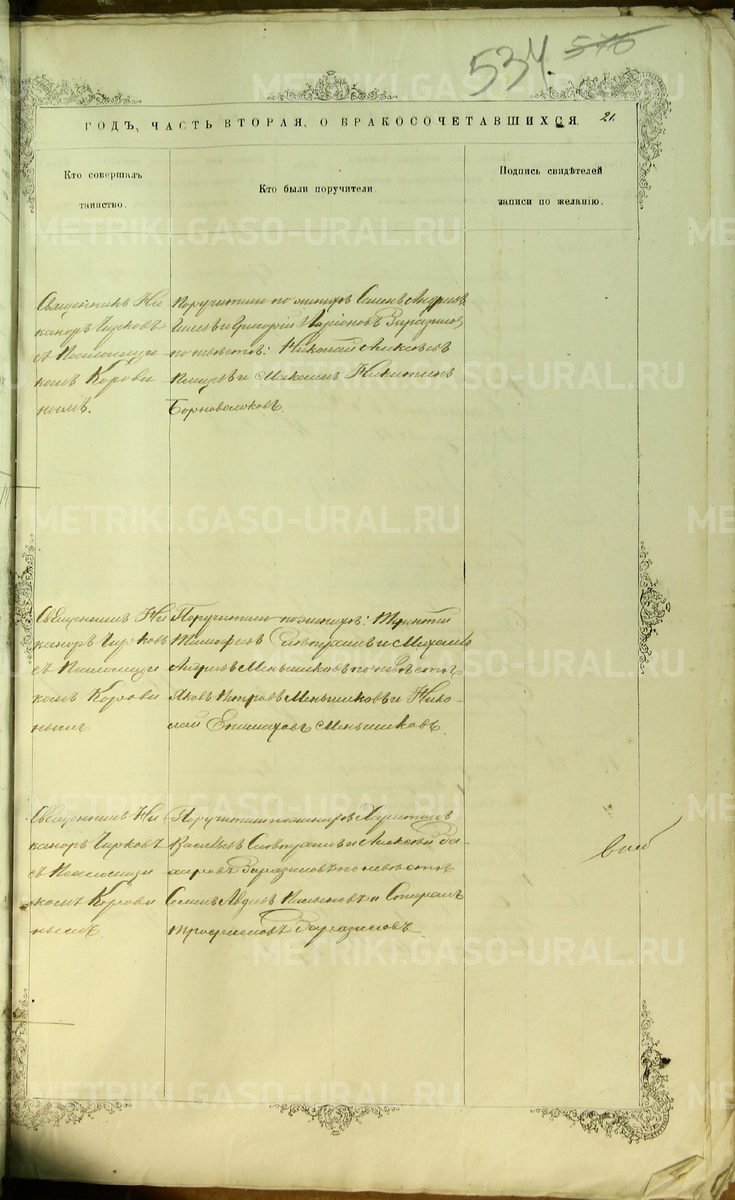 534 576
ГОДЪ, ЧАСТЬ ВТОРАЯ, О БРАКОСОЧЕТАВШИХСЯ. 21.
Кто совершалъ
таинство.
Кто были поручители.
Подпись свидѣтелей
записи по желанію.
Священникъ Ни
каноръ Чирковъ
съ Псаломщи
комъ Корови
нымъ.
Поручители по женихѣ Семенъ Андреевъ
и Григорій Иларіоновъ
по невѣстѣ: Николай Алексѣевъ
и Максимъ Никитинъ
Борноволоковъ
Священникъ Ни
каноръ Чирковъ
съ Псаломщи
комъ Корови
нымъ
Поручители по женихѣ: Терентій
Тимофеевъ и Михаилъ
Андреевъ Меньшиковъ по невѣстѣ
Яковъ Петровъ Меньшиковъ и Нико-
лай Епимаховъ Меньшиковъ.
Священникъ Ни-
каноръ Чирковъ
съ Псаломщи
комъ Корови
нымъ.
Поручители по женихѣ Харитонъ
Васильевъ и Алексѣй За-
харовъ по невѣстѣ
Семенъ Авдеевъ и
Трофимовъ
METRIKI.GASO-URAL.RU